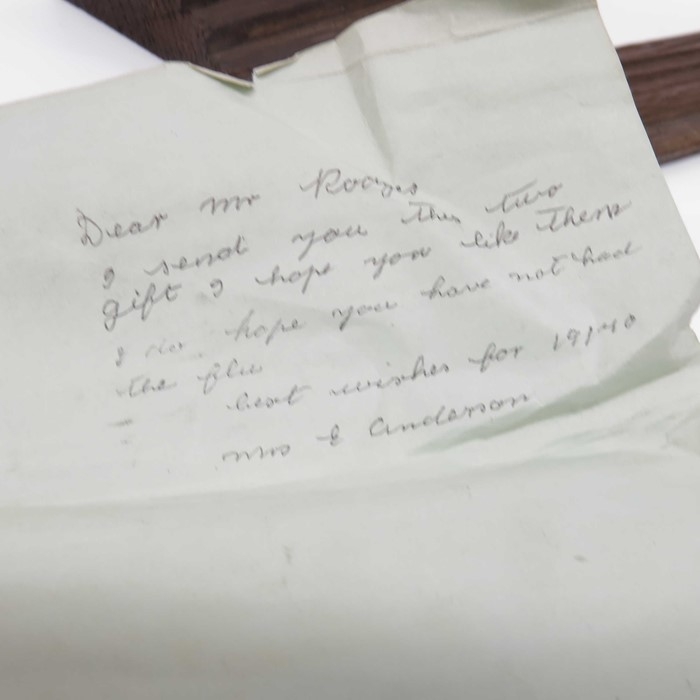 Dear Mr
I send you this two
gift I hope you like them
I do hope you have not had
the flu
best wishes for
Mrs E Anderson